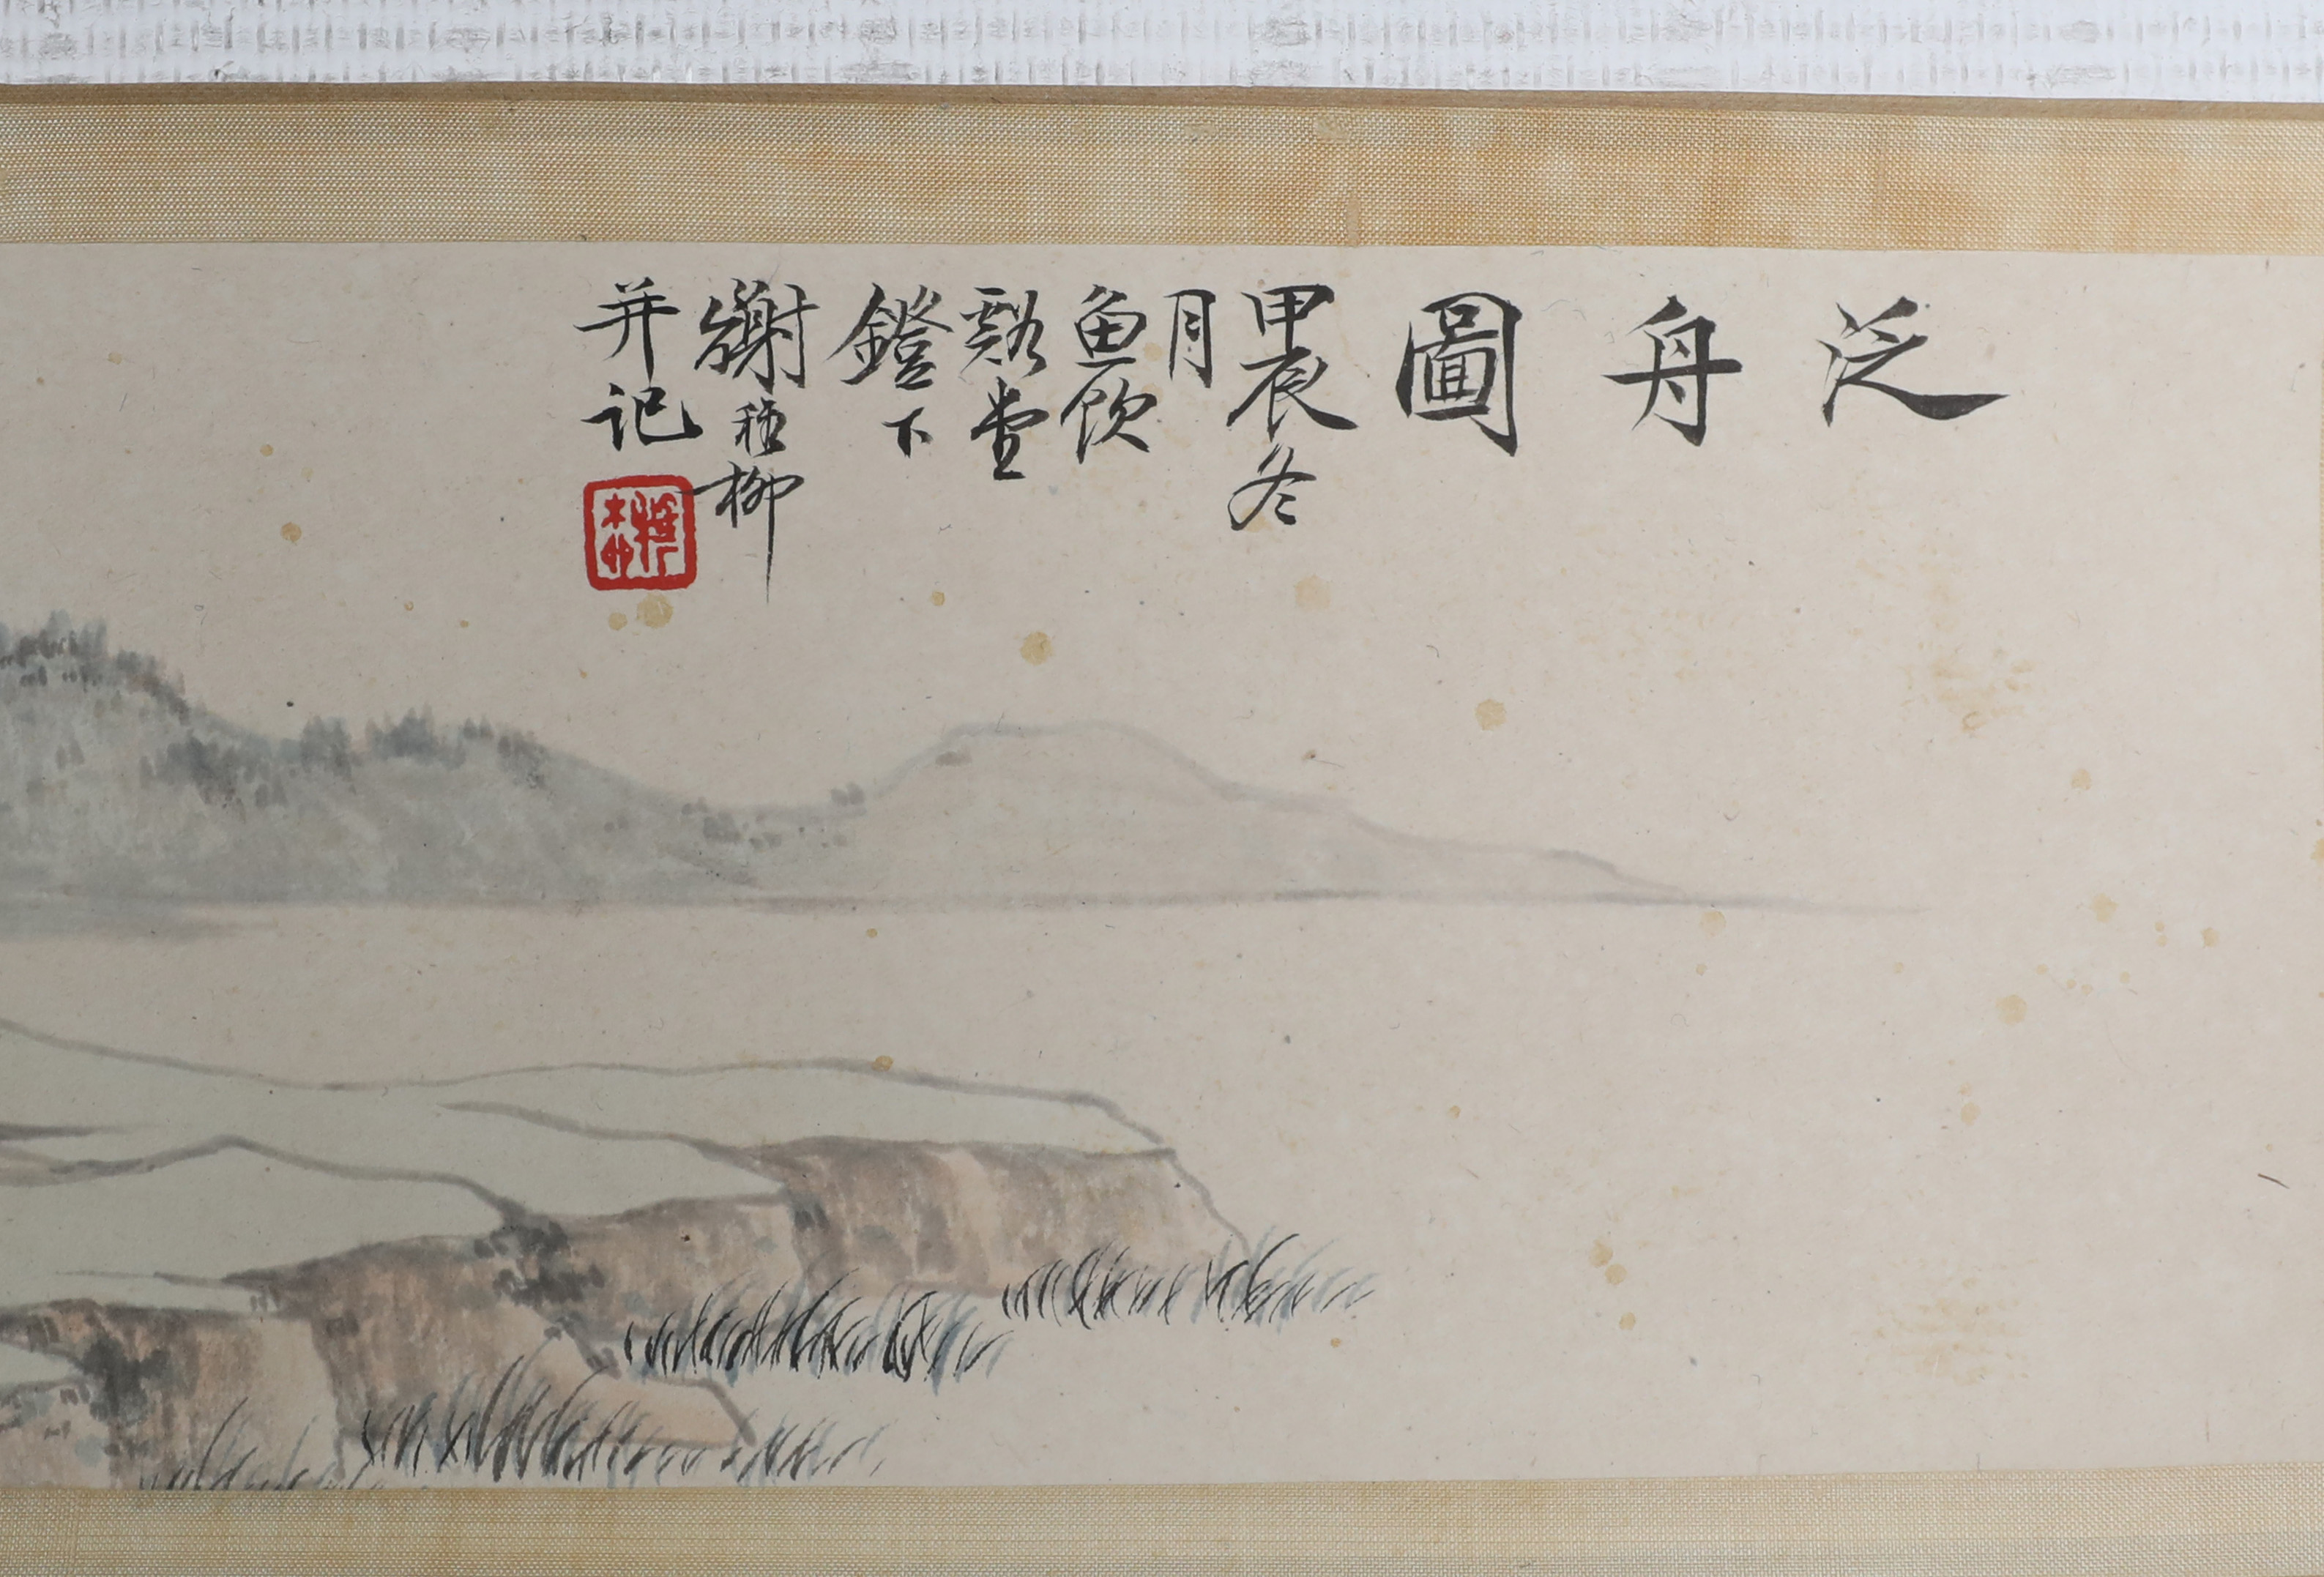 泛舟圖
甲辰冬
月
魚飲
谿堂
鐙下
謝稚柳
并记
稚柳